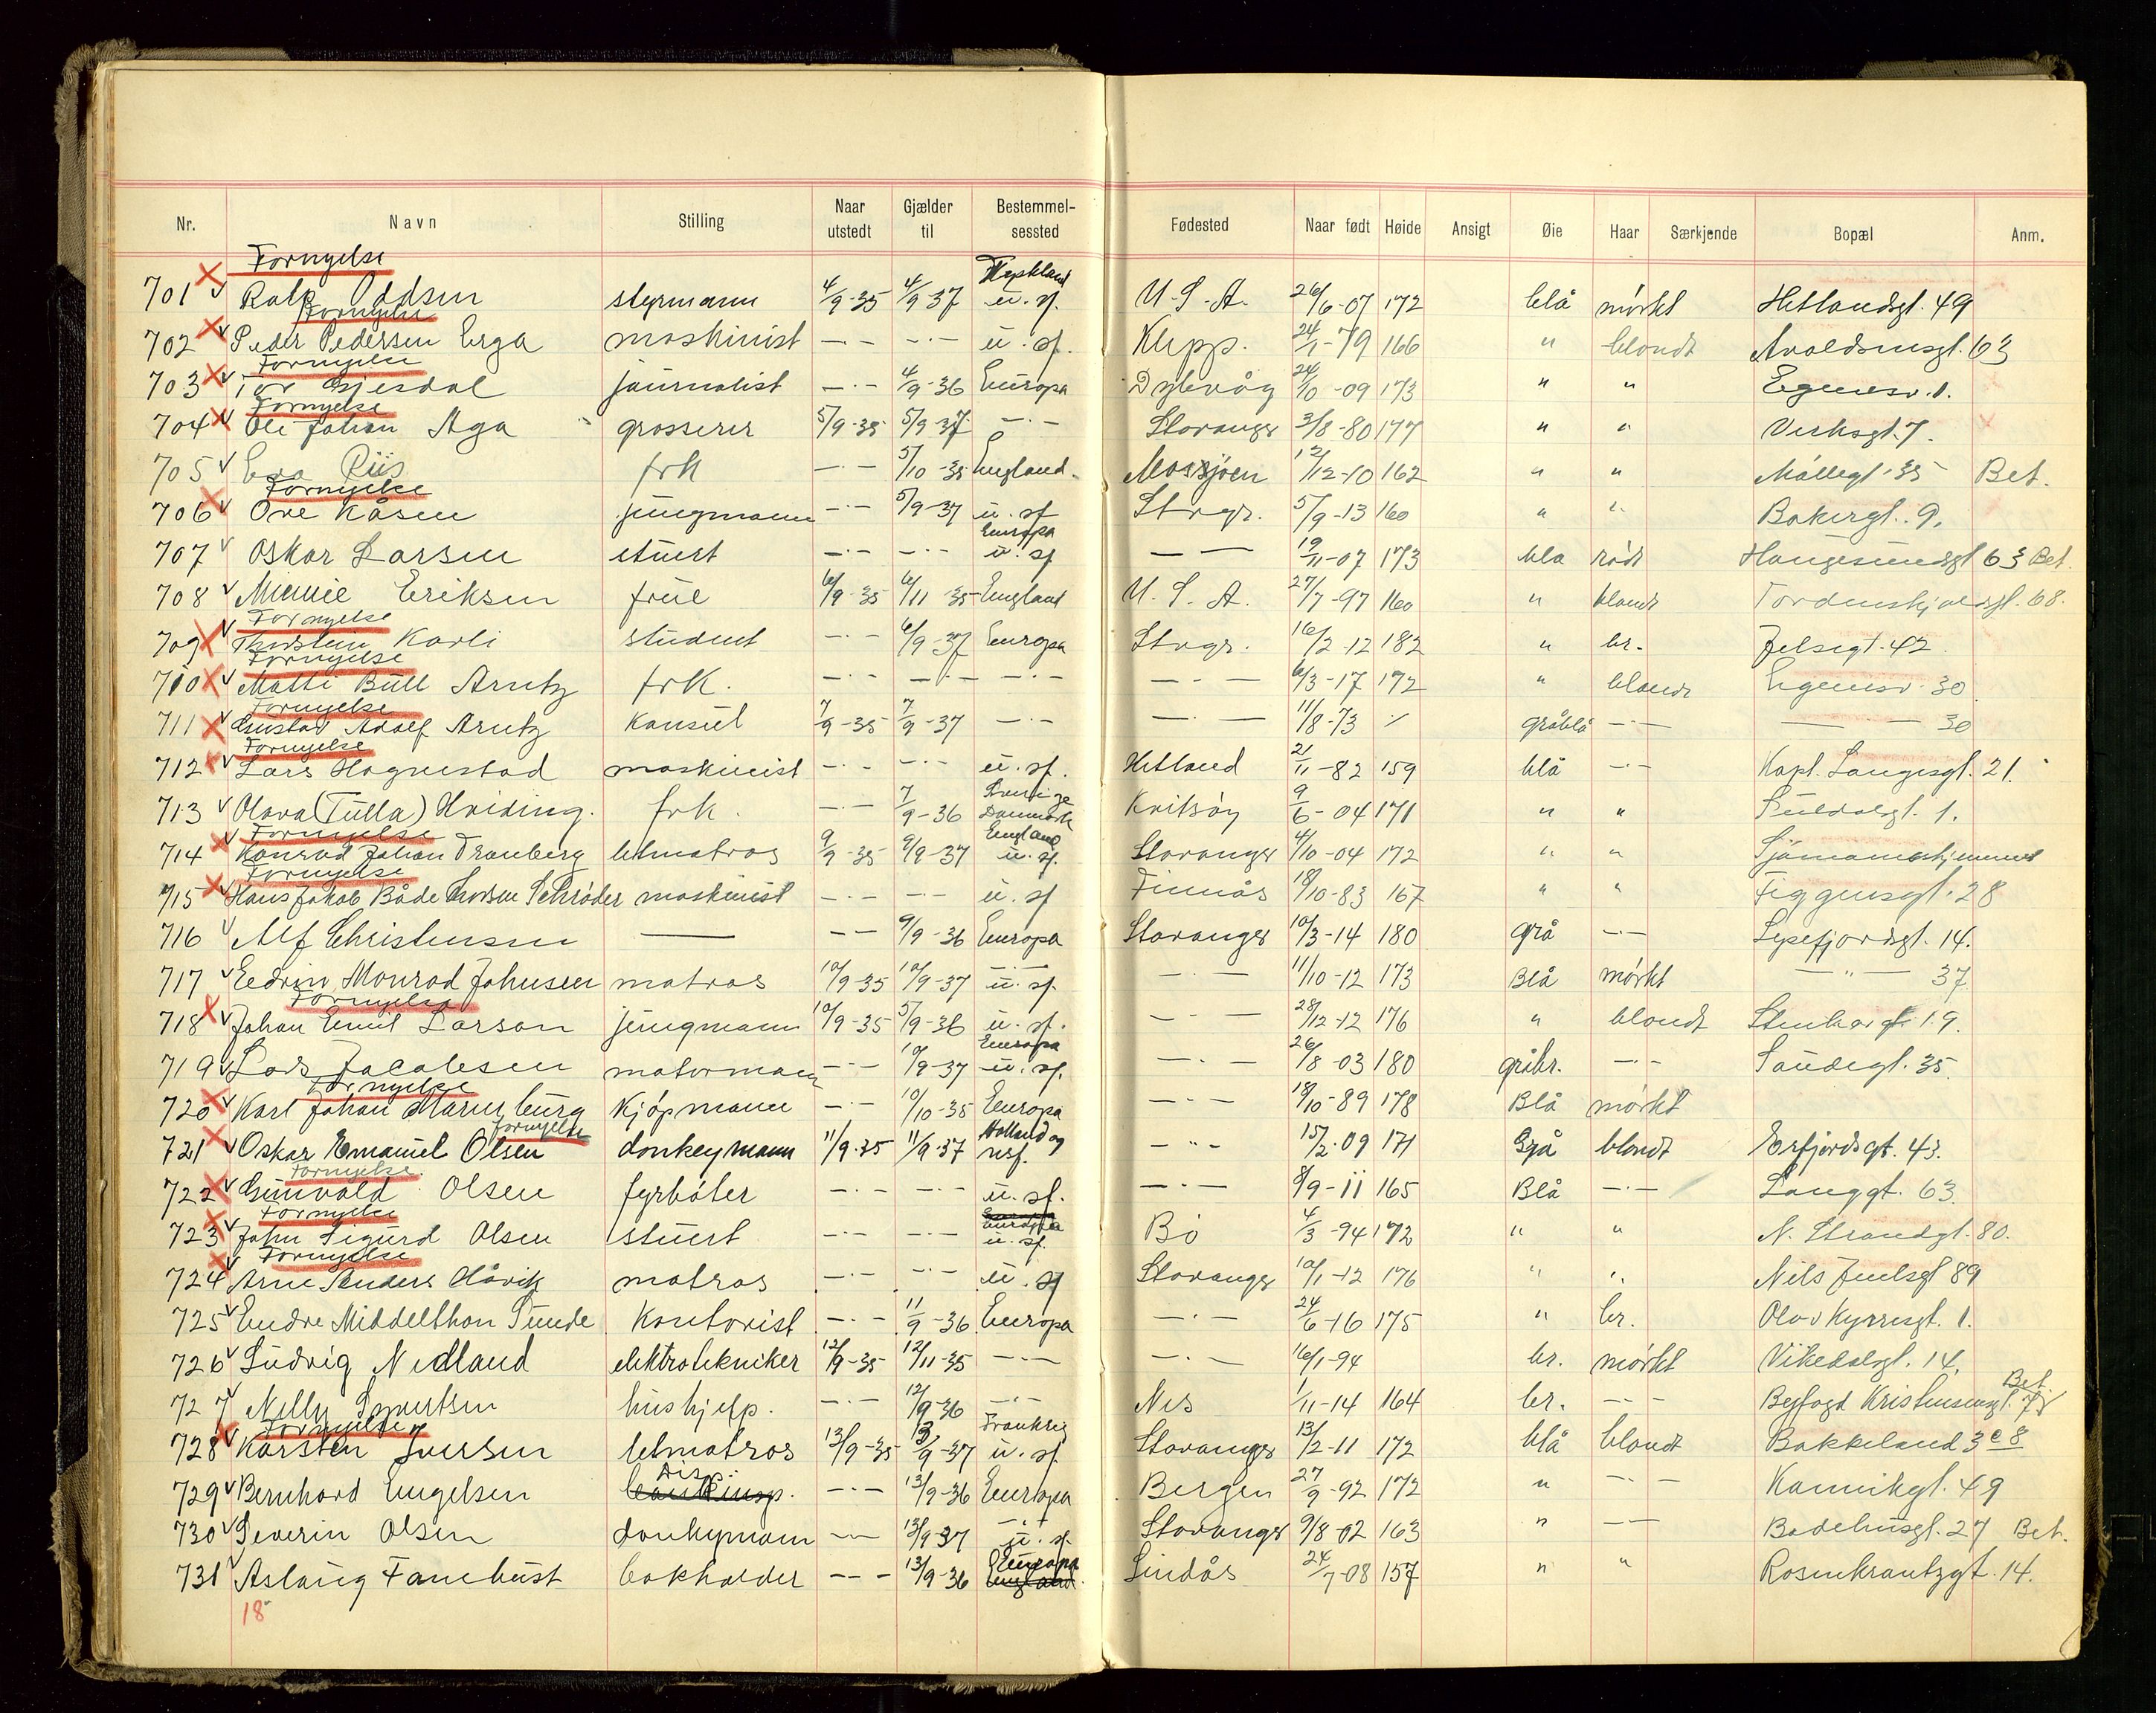 Nr. Navn Stilling Naar utstedt Gjælder til Bestemmel-sessted Fødested Naar født Høide Ansigt Øie Haar Særkjende Bopæl Anm.
Fornyelse Tyskland
701 Oddsen styrmann 4/9-35 4/9-37 u. sf. U.S.A. 26/6-07 172 blå mörkt Hetlandsgt. 49
Fornyelse
702 Peder Pedersen Erga maskinist -·- -·- u. sf. Klepp. 24/1-79 166 " blondt Avaldsnesgt. 63
Fornyelse
703 Tor Gjesdal journalist -·- 4/9-36 Europa 24/10-09 173 " " Egenesv. 1.
Fornyelse
704 Ole Johan Aga grosserer 5/9-35 5/9-37 -·- Stavanger 3/8-80 177 " " Verksgt. 7.
705 Eva Riis frk -·- 5/10-35 England Mosjöen 12/12-10 162 " " Möllegt. 35 Bet.
Fornyelse
706 Ove Kåsen jungmann -·- 5/9-37 u. sf Stvgr. 5/9-13 160 " " Bakergt. 9.
Europa
707 Oskar Larsen stuert -·- -·- u. sf — — 19/11-07 173 bla rödt Haugesundsgt 63 Bet.
708 Minnie Eriksen frue 6/9-35 6/11-35 England U.S.A. 27/7-97 160 " blondt Tordenskjoldsgt. 68.
Fornyelse
709 Thorstein Karli student -·- 6/9-37 Europa Stvgr. 16/2-12 182 " br. Jelsagt. 42.
Fornyelse
710 Matti Bull Arntz frk. -·- -·- -·- -·- 6/3-17 172 " blondt Egenesv. 30.
Fornyelse
711 Gustav Adolf Arntz Konsul 7/9-35 7/9-37 -·- -·- 11/8-73 gråblå -·- — — 30
Fornyelse
712 Lars Hognestad maskinist -·- -·- u. sf. Hetland 21/11-82 159 blå -·- Kapt. Langesgt. 21.
Sverige
713 Olava (Tulla) Hviding. frk. -·- 7/9-36 Danmark Kvitsöy 9/6-04 171 " " Suldalsgt. 1.
Fornyelse England
714 Konrad Johan Tranberg letmatros 9/9-35 9/9-37 u. sf. Stavanger 4/10-04 172 " " Sjömannshjemmet
Fornyelse
715 Hans Jakob Både Schröder maskinist -·- -·- u. sf Finnås 18/10-83 167 " " Figgensgt. 28
716 Alf Christensen — -- 9/9-36 Europa Stavanger 10/3-14 180 grå -·- Lysefjordsgt. 14.
717 Edvin Monrad Johnsen matros 10/9-35 10/9-37 -·- u. sf. -·- 11/10-12 173 Blå mörkt — " — 37
Fornyelse
718 Johan Emil Larson jungmann 10/9-35 5/9-36 u. sf. -·- 28/12-12 176 " blondt 19.
Europa
719 Lars Jacobsen motormann -·- 10/9-37 u. sf. -·- 26/8-03 180 gråbr. -·- Saudegt. 35
Fornyelse
720 Karl Johan Marenburg Kjöpmann -·- 10/10-35 Europa -·- 18/10-89 178 Blå mörkt
fornyelse Holland og
721 Oskar Emanuel Olsen donkeymann 11/9.35 11/9.37 usf. - " - 15/2.09 171 Grå blondt Erfjordsgt. 43.
Fornyelse
722 Gunvald Olsen fyrböter -·- -·- u. sf. -·- 8/9-11 165 Blå -·- Langgt. 63
Fornyelse Europa
723 John Sigurd Olsen stuert -·- -·- u. sf. Bö 4/3-94 172 " " N. Strandgt. 80.
Fornyelse
724 Arne Anders Håvik matros -·- -·- u. sf Stavanger 10/1-12 176 " " Nils Juelsgt 89
725 Endre Middelthon Sunde Kontorist -·- 11/9-36 Europa -·- 24/6-16 175 " br. Olav Kyrresgt. 1.
726 Ludvig Nedland elektrotekniker 12/9-35 12/11-35 -·- -·- 16/1-94 br. mörkt Vikedalsgt. 14.
727 Nelly Syvertsen hushjelp. -·- 12/9-36 -·- Nes 1/11-14 164 br. -- Byfogd Kristensensgt. Bet.
Fornyelse Frankrig
728 Karsten Iversen letmatros 13/9-35 13/9-37 u. sf. Stavanger 13/2-11 172 blå blondt Bakkeland 3e 8
Disp.
729 Bernhard Engelsen bankinsp. -·- 13/9-36 Europa Bergen 27/9-92 172 " -·- Kannikgt. 49
730 Severin Olsen donkymann -- 13/9 37 -·- u. sf. Stavanger 9/8-02 163 " -- Badehusgt. 27 Bet.
Europa
731 Aslaug Fanebust bokholder --- 13/9-36 England. Lindås 24/7-08 157 " " Rosenkrantzgt. 14.
18